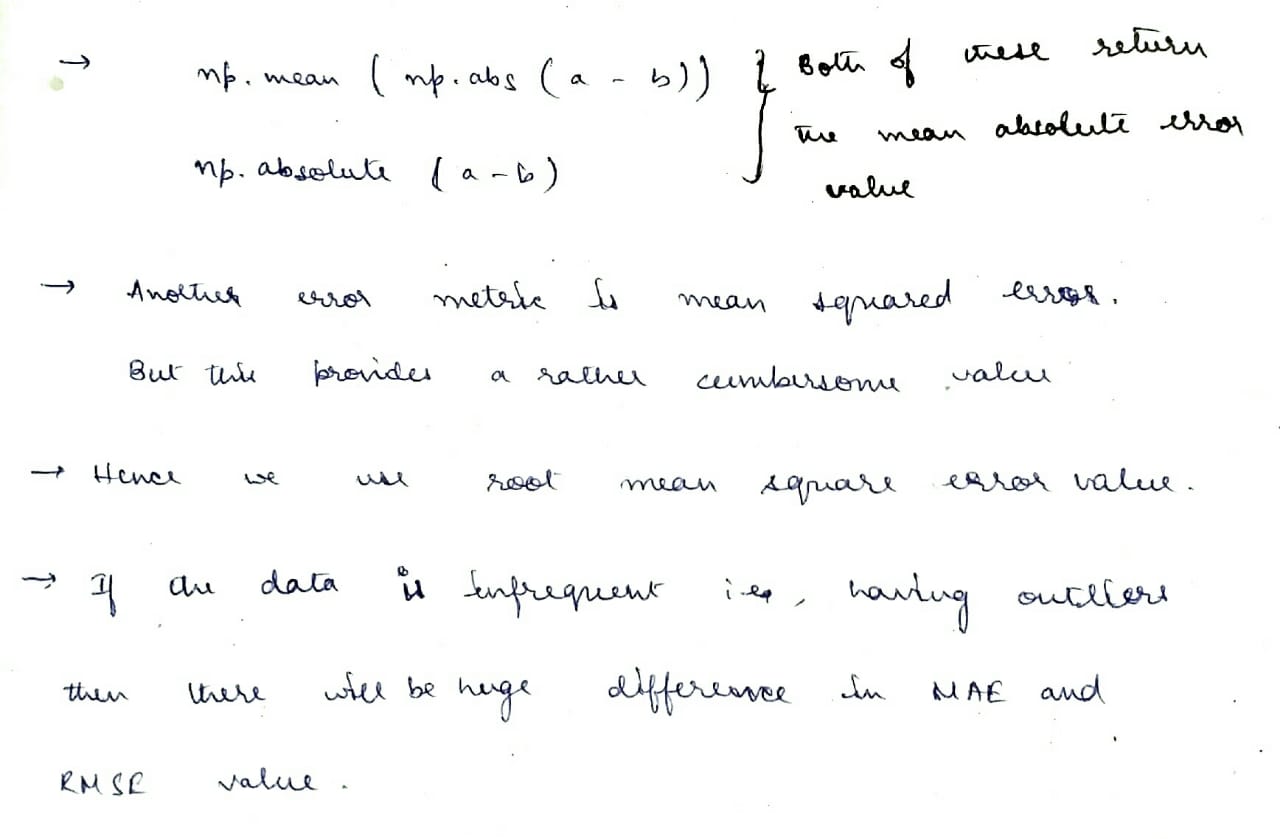 → np. mean ( np. abs ( a - b)) } Both of these return
the mean absolute error
np. absolute ( a - b)
value
→ Another error metric is mean squared error.
But this provides a rather cumbersome value
→ Hence we use root mean square error value.
→ If the data is infrequent i.e, having outliers
then there will be huge difference in MAE and
RMSE value.